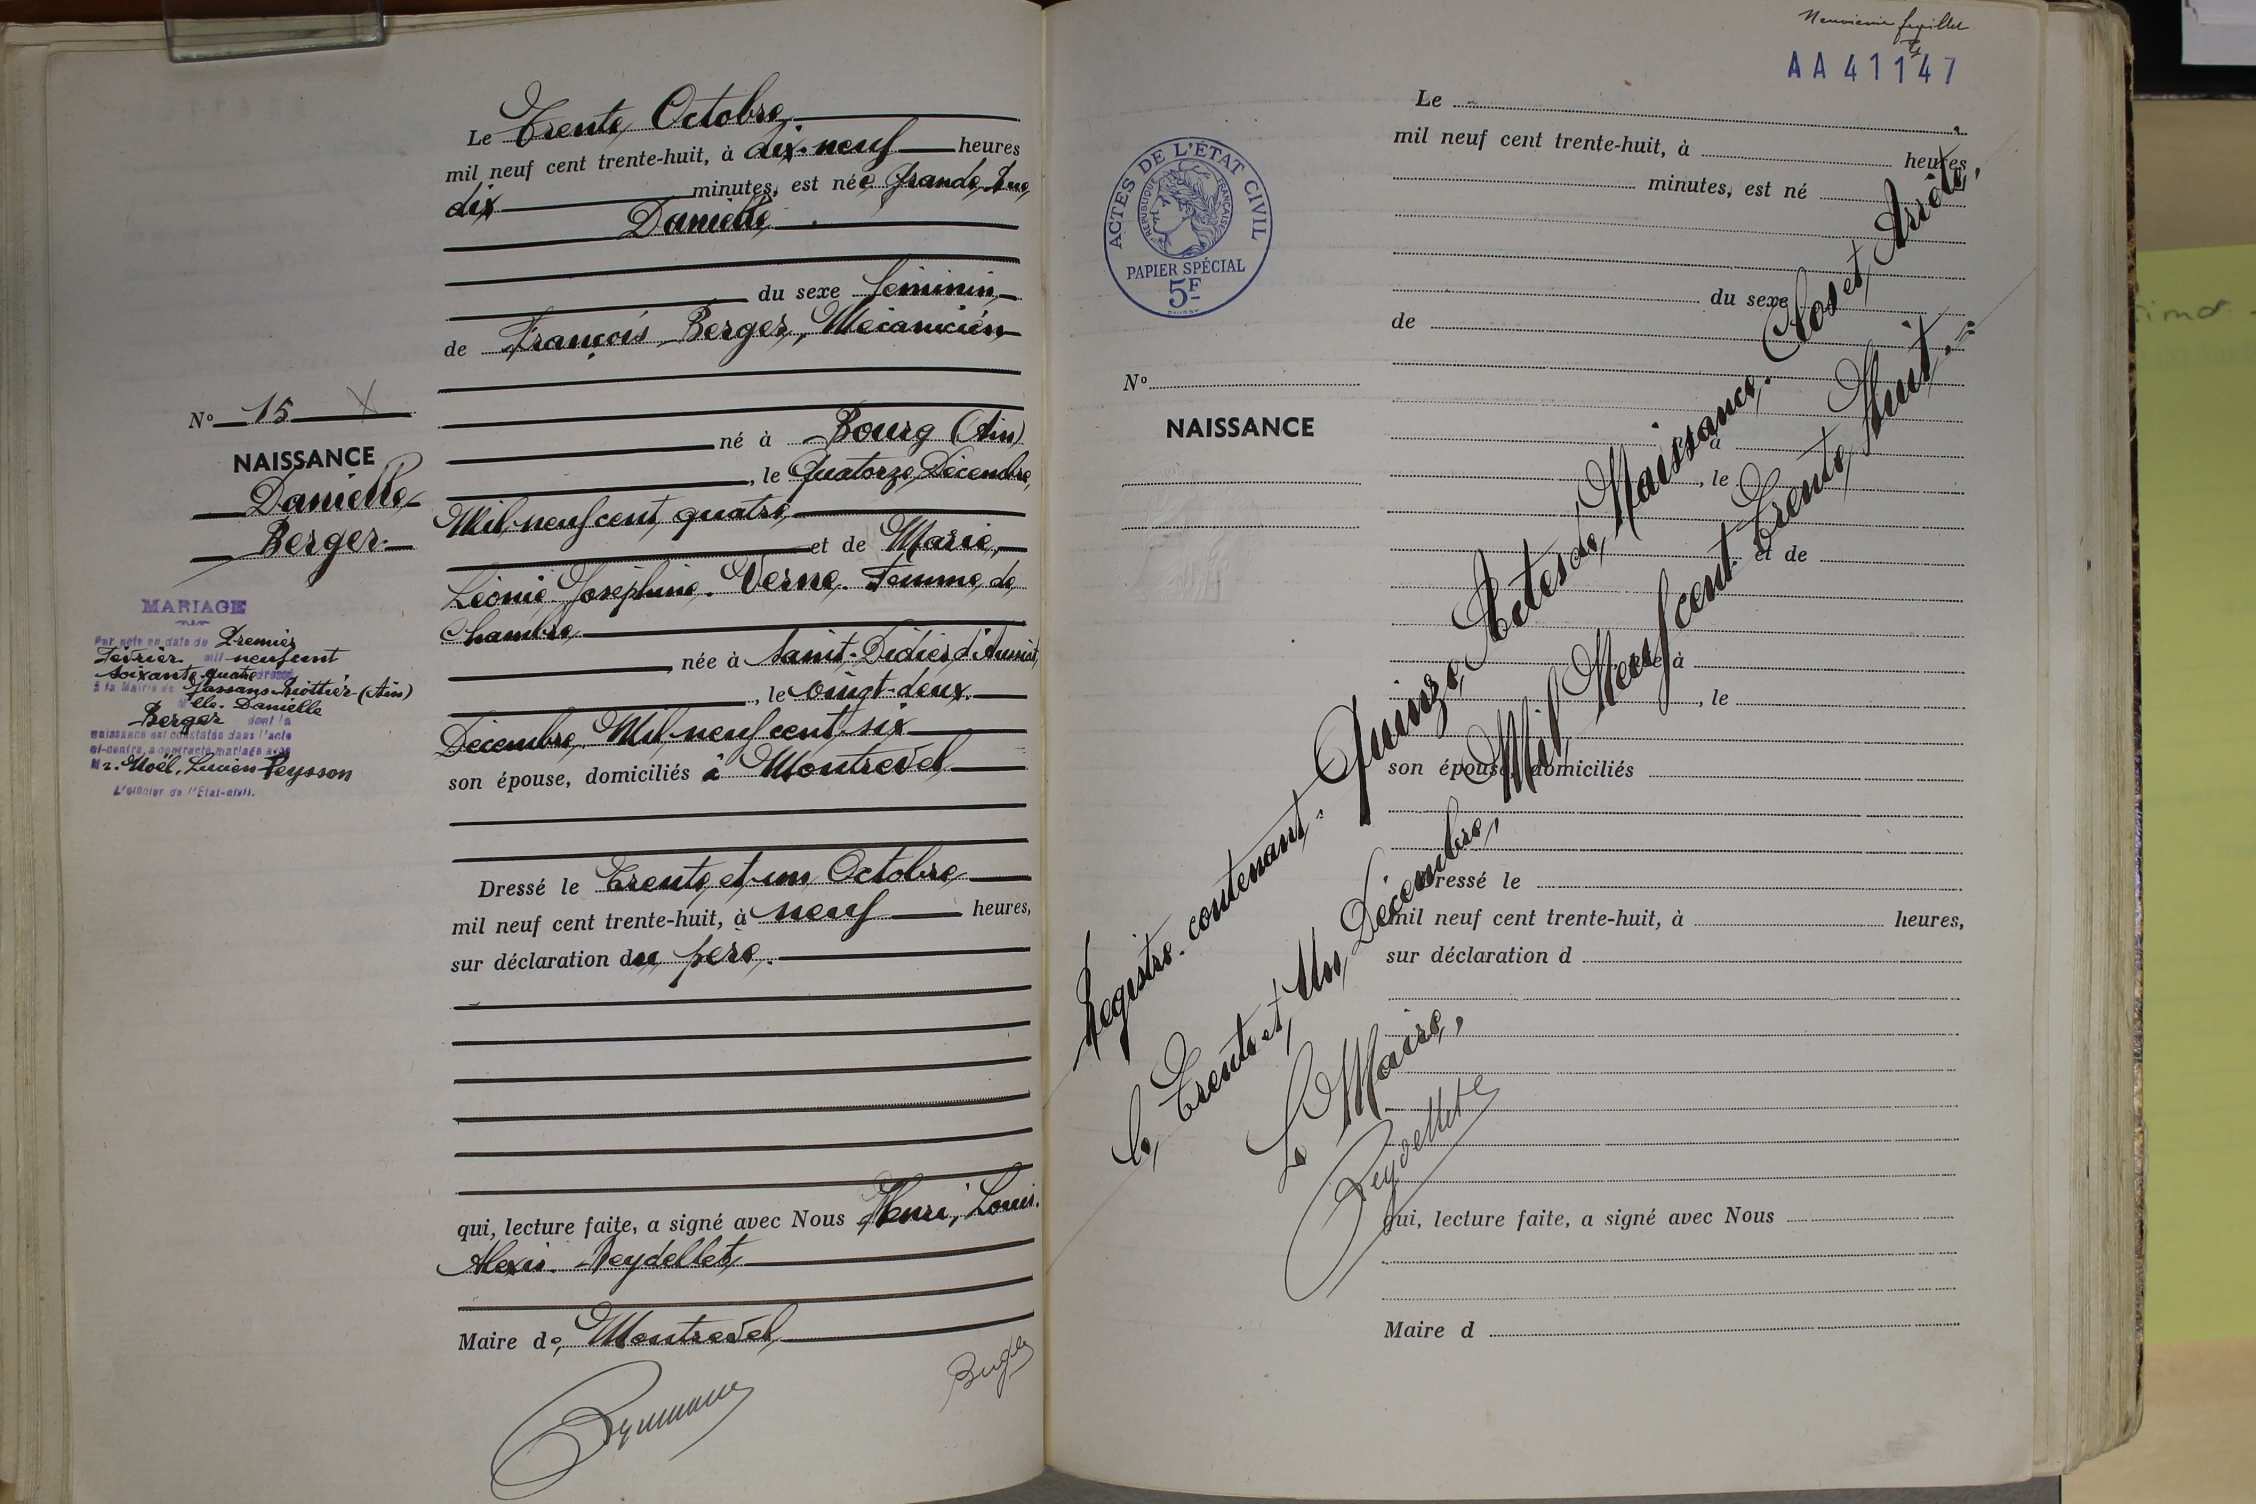 N° 15
NAISSANCE
Danielle
Berger.
MARIAGE
Par acte en date du Premier
Février mil neuf cent
soixante-quatre dressé
à la Mairie de Jassans-Riottier (Ain)
Mlle. Danielle
Berger dont la
naissance est constatée dans l'acte
ci-contre, a contracté mariage avec
Mr. Noël, Lucien Peysson
L'officier de l'Etat-civil.
Le Trente Octobre
mil neuf cent trente-huit, à dix-neuf heures
dix minutes, est née Grande Rue,
Danielle
du sexe féminin,
de François Berger, Mécanicien
né à Bourg (Ain)
, le Quatorze Décembre,
Mil neuf cent quatre,
et de Marie,
Léonie Joséphine. Verne. Femme de
Chambre,
née à Saint-Didier d'Aussiat,
, le vingt-deux.
Décembre. Mil neuf cent six
son épouse, domiciliés à Montrevel
Dressé le Trente et un Octobre
mil neuf cent trente-huit, à neuf heures,
sur déclaration du père.
qui, lecture faite, a signé avec Nous Henri, Louis.
Alexis. Reydellet,
Maire de, Montrevel,
Neuvième feuillet
AA 41147
ACTES DE L'ÉTAT CIVIL
RÉPUBLIQUE FRANÇAISE
PAPIER SPÉCIAL
5F
N°
NAISSANCE
Le
mil neuf cent trente-huit, à heures
minutes, est né
du sexe
de
à
, le
et de
née à
, le
son épouse, domiciliés
Dressé le
mil neuf cent trente-huit, à heures,
sur déclaration d
qui, lecture faite, a signé avec Nous
Maire d
Registre contenant. Quinze, Actes de, Naissance. Clos et, Arrêté,
le, Trente et, Un, Décembre, Mil, Neuf cent. Trente, Huit.
Le Maire,
Reydellet